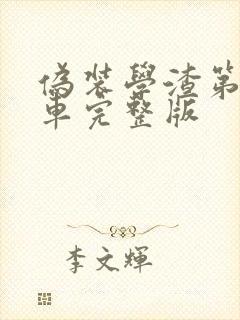 偽裝學渣第
車完整版
李文輝